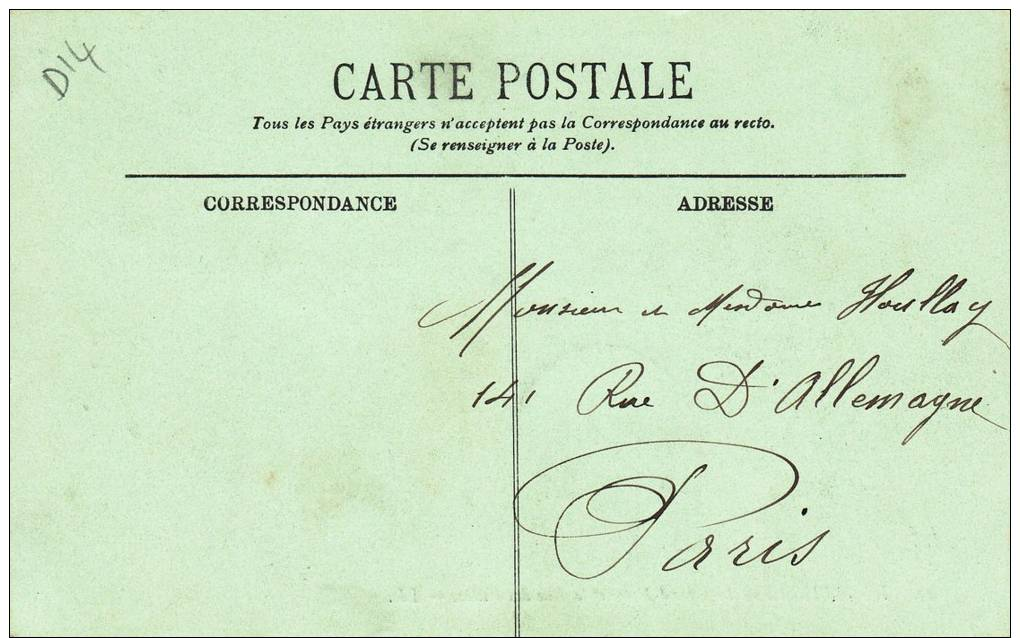 D14
CARTE POSTALE
Tous les Pays étrangers n'acceptent pas la Correspondance au recto.
(Se renseigner à la Poste).
CORRESPONDANCE
ADRESSE
Monsieur et Madame Houllay
141 Rue D'Allemagne
Paris